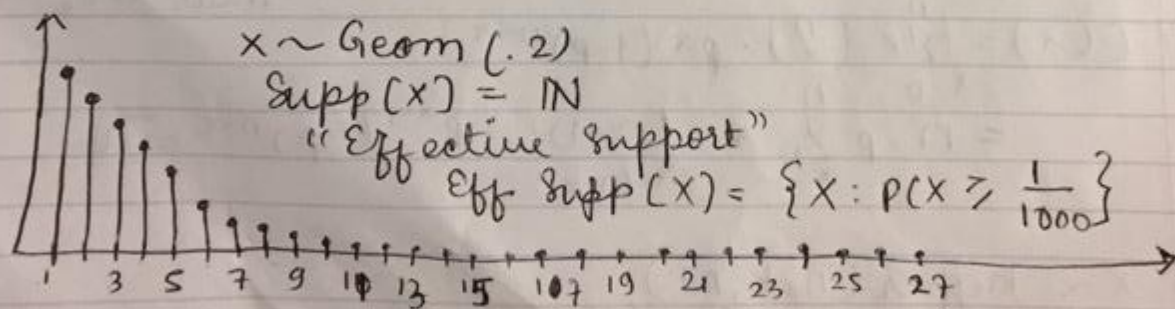 X ~ Geom (.2)
Supp (X) = ℕ
"Effective support"
Eff Supp (X) = { X : P(X ≥ 1/1000 }
1 3 5 7 9 11 13 15 17 19 21 23 25 27